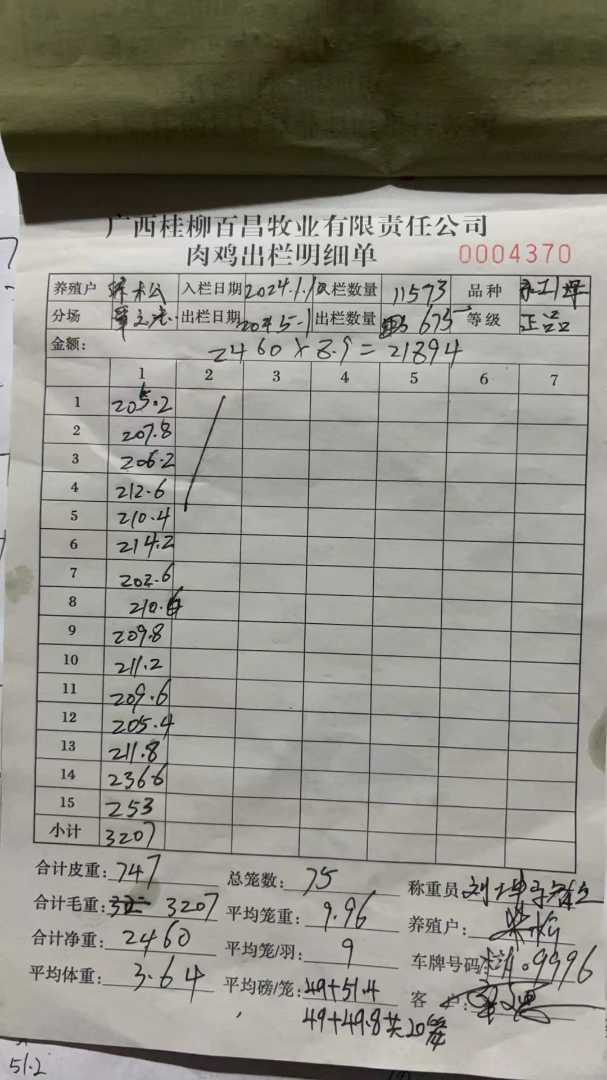 广西桂柳百昌牧业有限责任公司
肉鸡出栏明细单 0004370
养殖户 入栏日期 2024.1.1 入栏数量 11573 品种
分场 出栏日期 出栏数量 675 等级 正品
金额: 2460×8.9=21894
1 2 3 4 5 6 7
1 205.2
2 207.8
3 206.2
4 212.6
5 210.4
6 214.2
7 202.6
8 210.6
9 209.8
10 211.2
11 209.6
12 205.4
13 211.8
14 236.6
15 253
小计 3207
合计皮重: 747 总笼数: 75 称重员
合计毛重: 3207 平均笼重: 9.96 养殖户:
合计净重: 2460 平均笼/羽: 9 车牌号码: 9996
平均体重: 3.64 平均磅/笼: 49+51.4 客
49+49.8共20
51.2